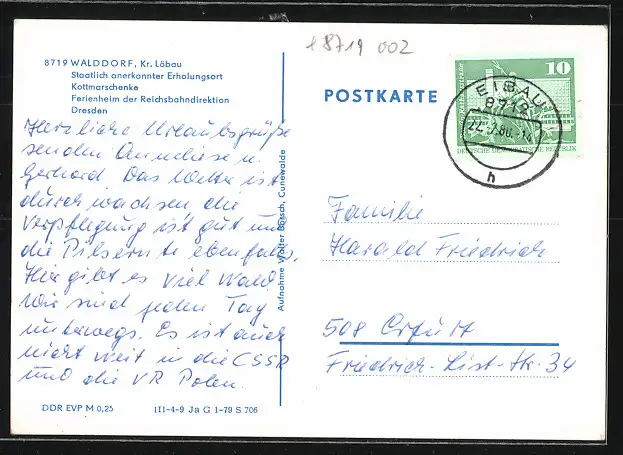 18719 002
8719 WALDDORF, Kr. Löbau
Staatlich anerkannter Erholungsort
Kottmarschenke
Ferienheim der Reichsbahndirektion
Dresden
Herzliche Urlaubsgrüße
senden Annneliese u.
Gerhard. Das Wetter ist
durchwachsen die
Verpflegung ist gut und
die Pilsernte ebenfalls.
Hier gibt es viel Wald
Wir sind jeden Tag
unterwegs. Es ist auch
nicht weit in die CSSR
und die VR Polen.
DDR EVP M 0,25
III-4-9 Ja G 1-79 S 706
Aufnahme Walter Cunewalde
POSTKARTE
10
DEUTSCHE DEMOKRATISCHE REPUBLIK
EIBAU
8712
h
Familie
Harald Friedrich
508 Erfurt
Friedrich-List-Str. 34